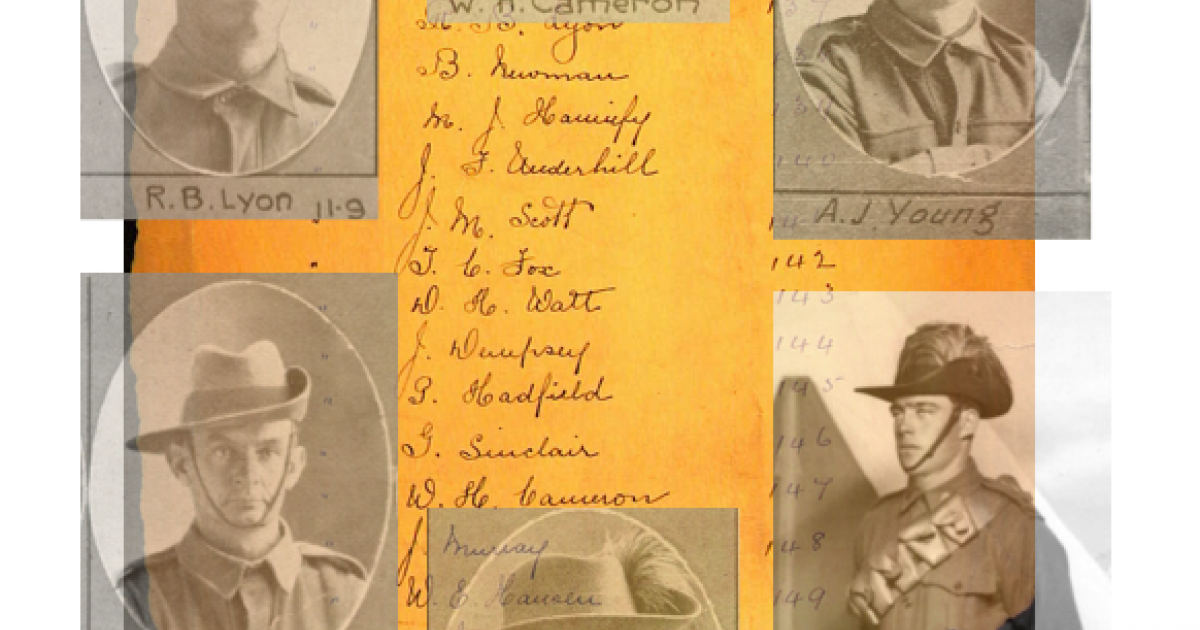 W. H. Cameron
R. B. Lyon
137
B. Newman
M. J. Hannify
139
J. F. Underhill
140
R.B. Lyon 11.9
A.J. Young
J. M. Scott
14
T. C. Fox
142
D. H. Watt
143
J. Dempsey
144
P. Hadfield
145
G. Sinclair
146
W. H. Cameron
147
J. Murray
148
W. E. Hansen
149